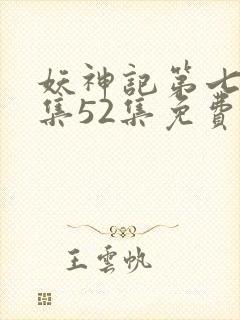 妖神記第七
集52集免費
王雲帆